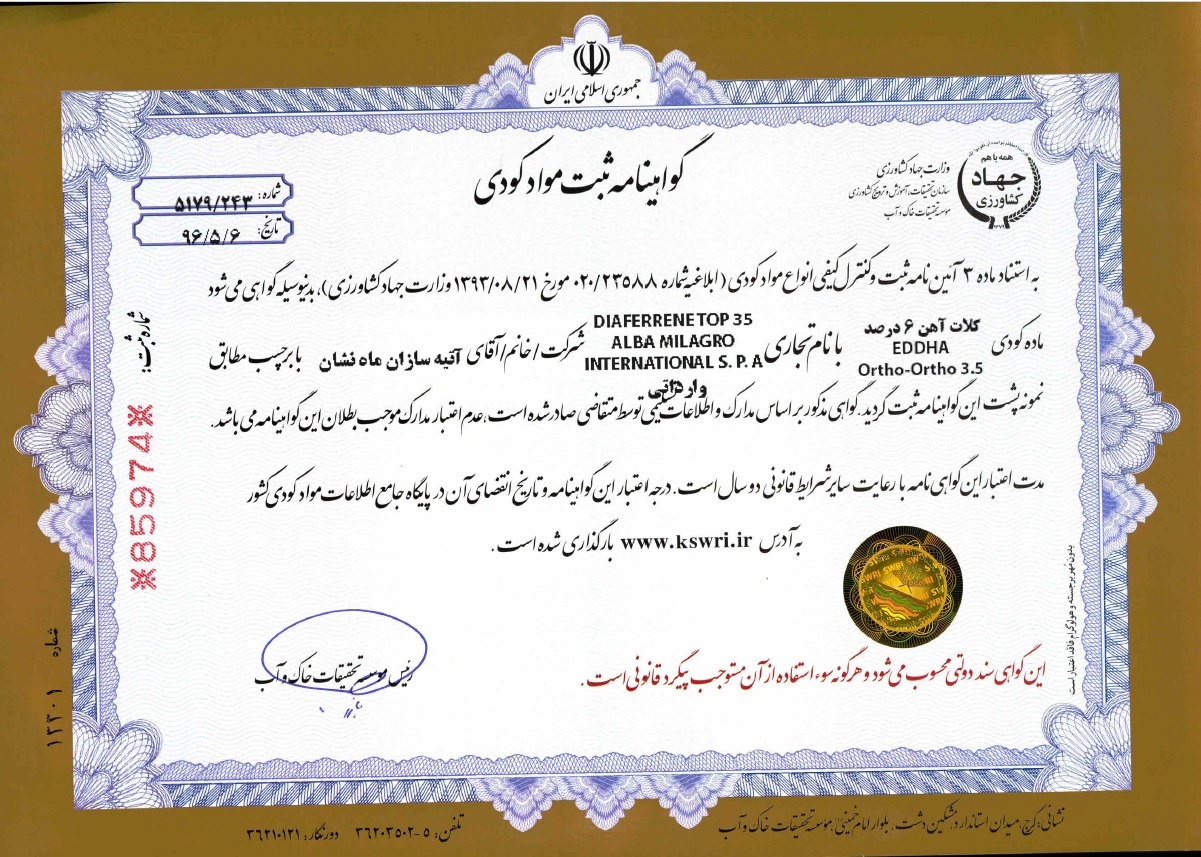 جمهوری اسلامی ایران
همه با هم
جهاد
کشاورزی
وزارت جهاد کشاورزی
سازمان تحقیقات، آموزش و ترویج کشاورزی
موسسه تحقیقات خاک و آب
گواهینامه ثبت مواد کودی
شماره: ۵۱۷۹/۲۴۳
تاریخ: ۹۶/۵/۶
به استناد ماده ۳ آئین نامه ثبت و کنترل کیفی انواع مواد کودی (ابلاغیه شماره ۰۲۰/۲۳۵۸۸ مورخ ۱۳۹۳/۰۸/۲۱ وزارت جهاد کشاورزی)، بدینوسیله گواهی می شود
ماده کودی کلات آهن ۶ درصد EDDHA Ortho-Ortho 3.5 با نام تجاری DIAFERRENE TOP 35 ALBA MILAGRO INTERNATIONAL S. P. A وارداتی شرکت/خانم/آقای آتیه سازان ماه نشان با برچسب مطابق
نمونه پشت این گواهینامه ثبت گردید. گواهی مذکور بر اساس مدارک و اطلاعات توسط متقاضی صادر شده است، عدم اعتبار مدارک موجب بطلان این گواهینامه می باشد.
مدت اعتبار این گواهی نامه با رعایت سایر شرایط قانونی دو سال است. درجه اعتبار این گواهینامه و تاریخ انقضای آن در پایگاه جامع اطلاعات مواد کودی کشور
به آدرس www.kswri.ir بارگذاری شده است.
شماره ثبت:
*85974*
SWRI
این گواهی سند دولتی محسوب می شود و هرگونه سوء استفاده از آن مستوجب پیگرد قانونی است.
رئیس موسسه تحقیقات خاک و آب
بدون مهر برجسته و هولوگرام فاقد اعتبار است
شماره ۱۳۳۰۱
نشانی: کرج، میدان استاندارد، مشکین دشت، بلوار امام خمینی، موسسه تحقیقات خاک و آب
تلفن: ۵-۳۶۲۰۳۵۰۲ دورنگار: ۳۶۲۱۰۱۲۱